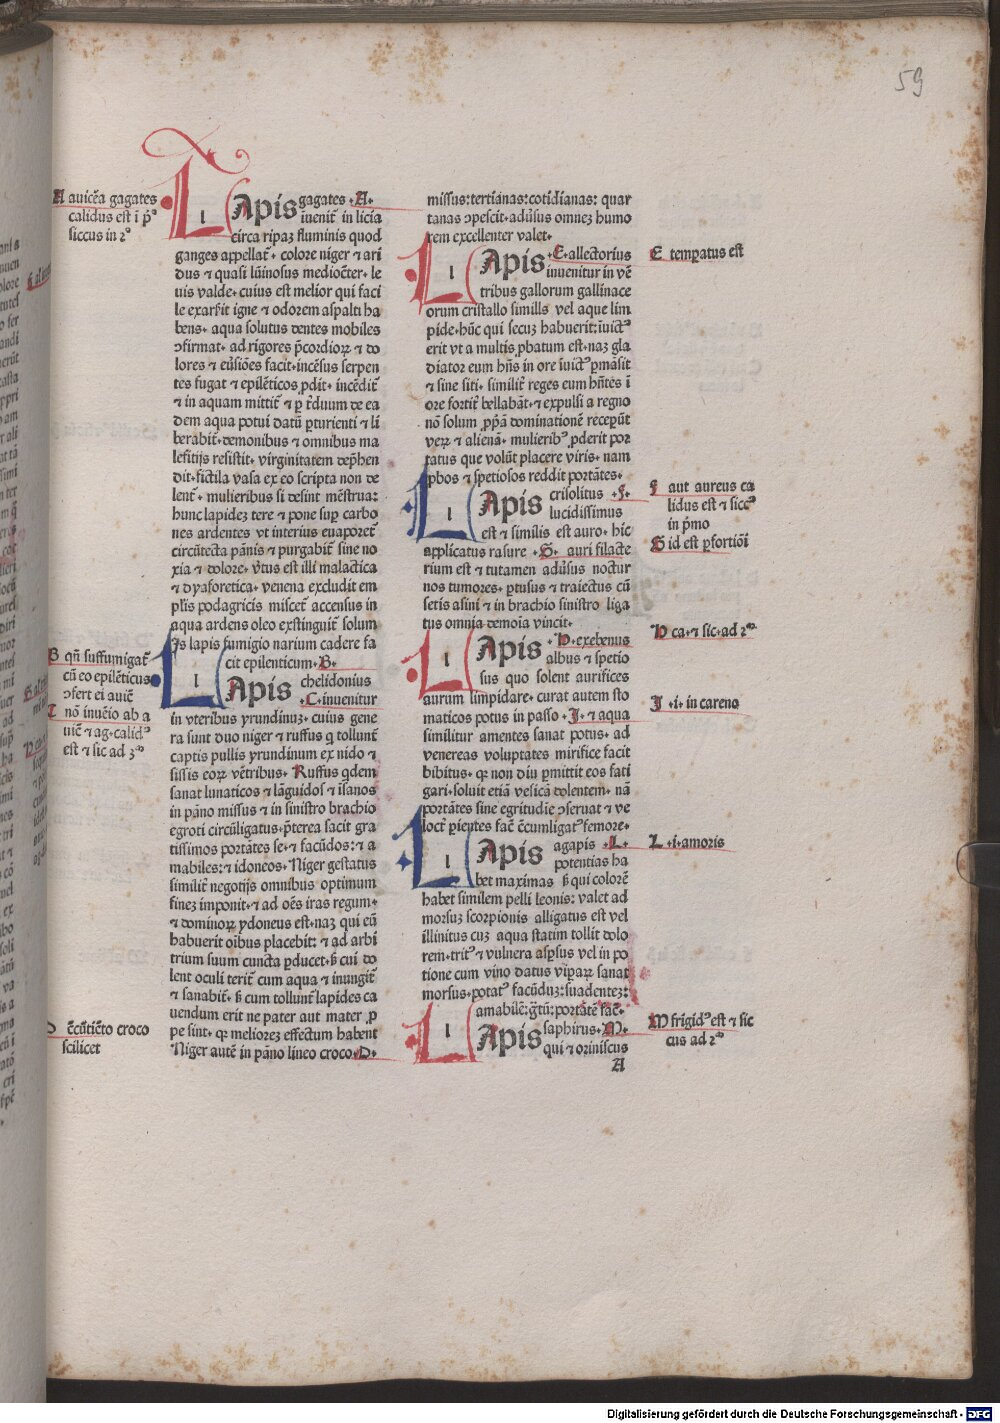 59
A auicēa gagates
calidus est ī p̄º
siccus in 2º
LApis gagates · A ·
īuenit̄ in licia
circa ripaȝ fluminis quod
ganges appellat̄ · colore niger ⁊ ari
dus ⁊ quasi lūinosus mediocr̄ter · le
uis valde · cuius est melior qui faci
le exarsit igne ⁊ odorem aspalti ha
bens · aqua solutus dentes mobiles
ↄfirmat · ad rigores p̄cordioꝝ ⁊ do
lores ⁊ eūsiōes facit · incēsus serpen
tes fugat ⁊ epilēticos ꝓdit · incēdit̄
⁊ in aquam mittit̄ ⁊ ꝑ t̄duum de ea
dem aqua potui datū ꝑturienti ⁊ li
berabit̄ · demonibus ⁊ omnibus ma
lefitijs resistit · virginitatem dep̄hen
dit · fictila vasa ex eo scripta non de
lent̄ · mulieribus si desint mēstrua:
hunc lapideȝ tere ⁊ pone suꝑ carbo
nes ardentes vt interius euaporet̄
circūtecta pānis ⁊ purgabit̄ sine no
xia ⁊ dolore · v̄tus est illi malactica
⁊ dyaforetica · venena excludit em
plīs podagricis miscet̄ accensus in
aqua ardens oleo exstinguit̄ solum
Js lapis fumigio narium cadere fa
cit epilenticum · B ·
B qn̄ suffumigat̄
cū eo epilēticus
ↄfert ei auic̄
C nō inuēio ab a
uic̄ ⁊ ag · calidꝰ
est ⁊ sic ad 3º
LApis chelidonius
· C · inuenitur
in vteribus yrundinuȝ · cuius gene
ra sunt duo niger ⁊ ruffus q̄ tollunt̄
captis pullis yrundinum ex nido ⁊
sissis eoꝝ vētribus · Ruffus qͥdem
sanat lunaticos ⁊ lāguidos ⁊ īsanos
in pāno missus ⁊ in sinistro brachio
egroti circūligatus · p̄terea facit gra
tissimos portātes se · ⁊ facūdos: ⁊ a
mabiles: ⁊ idoneos · Niger gestatus
similit̄ negotijs omnibus optimum
fineȝ imponit · ⁊ ad oēs iras regum ·
⁊ dominoꝝ ydoneus est · naȝ qui eū
habuerit oībus placebit: ⁊ ad arbi
trium suum cuncta ꝑducet · ß cui do
lent oculi terit̄ cum aqua ⁊ inungit̄
⁊ sanabit̄ · ß cum tollunt̄ lapides ca
uendum erit ne pater aut mater ꝓ
pe sint · qꝛ meliorez effectum habent
Niger autē in pāno lineo croco · D ·
D c̄cūtīcto croco
scilicet
missus: tertianas: cotidianas: quar
tanas ↄpescit · aduersus omneȝ humo
rem excellenter valet ·
LApis · E · allectorius
inuenitur in vē
tribus gallorum gallinace
orum cristallo similis vel aque lim
pide · hūc qui secuȝ habuerit: īuictꝰ
erit vt a multis ꝓbatum est · naȝ gla
diator eum hn̄s in ore īuictꝰ ꝑmāsit
⁊ sine siti · similit̄ reges eum hn̄tes ī
ore fortit̄ bellabāt · ⁊ expulsi a regno
nō solum ꝓpā dominationē receperūt
veꝝ ⁊ alienā · mulieribꝰ ꝓderit por
tatus que volūt placere viris · nam
ꝓbos ⁊ spetiosos reddit portātes ·
E temꝑatus est
LApis crisolitus · F ·
lucidissimus
est ⁊ similis est auro · hic
applicatus rasure · G · auri filacte
rium est ⁊ tutamen adūsus noctur
nos tumores · ꝑtusus ⁊ traiectus cū
setis asini ⁊ in brachio sinistro liga
tus omnia demoīa vincit ·
F aut aureus ca
lidus est ⁊ siccꝰ
in p̄mo
G id est ꝑfortiōī
LApis · H · exebenus
albus ⁊ spetio
sus quo solent aurifices
aurum limpidare · curat autem sto
maticos potus in passo · J · ⁊ aqua
similitur amentes sanat potus · ad
venereas voluptates mirifice facit
bibitus · qꝛ non diu ꝑmittit eos fati
gari · soluit etiā vesicā dolentem · nā
portātes sine egritudīe ↄseruat ⁊ ve
loct̄ ꝑientes fac̄ c̄cumligatꝰ femore ·
H ca · ⁊ sic · ad 2º
J · i · in careno
LApis agapis · L ·
potentias ha
bet maximas ß qui colorē
habet similem pelli leonis: valet ad
morsuȝ scorpionis alligatus est vel
illinitus cuȝ aqua statim tollit dolo
rem · tritꝰ ⁊ vulnera aspsus vel in po
tione cum vino datus viꝑaꝝ sanat
morsus · potatꝰ facūduȝ: suadenteȝ:
amabilē: ḡtū: portātē fac̄ ·
L · i · amoris
LApis saphirus · M ·
qui ⁊ oriniscus
A
M frigidꝰ est ⁊ sic
cus ad 2º
Digitalisierung gefördert durch die Deutsche Forschungsgemeinschaft - DFG